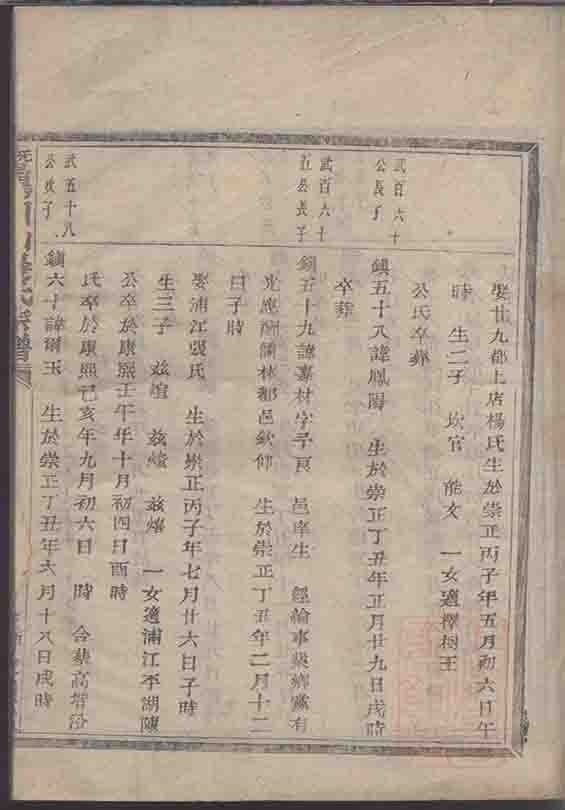 娶廿九都上店楊氏生於崇正丙子年五月初六日午
時　生二子　坎官　能文　一女適檡樹王
公氏卒葬
武百六十
公長子
鎮五十八諱鳳陽　生於崇正丁丑年正月廿九日戌時
卒葬
武百六十
五公長子
鎮五十九諱　材字子　邑庠生　經綸事業鄉黨有
光應酬儒林都邑欽仰　生於崇正丁丑年二月十二
日子時
娶浦江張氏　生於崇正丙子年七月廿六日子時
生三子　茲煊　茲燈　茲熺　一女適浦江平湖陳
公卒於康熙壬午年十月初四日酉時
氏卒於康熙己亥年九月初六日　時　合葬高塔
武五十八
公次子
鎮六十諱爾玉　生於崇正丁丑年六月十八日戌時
氏宗譜